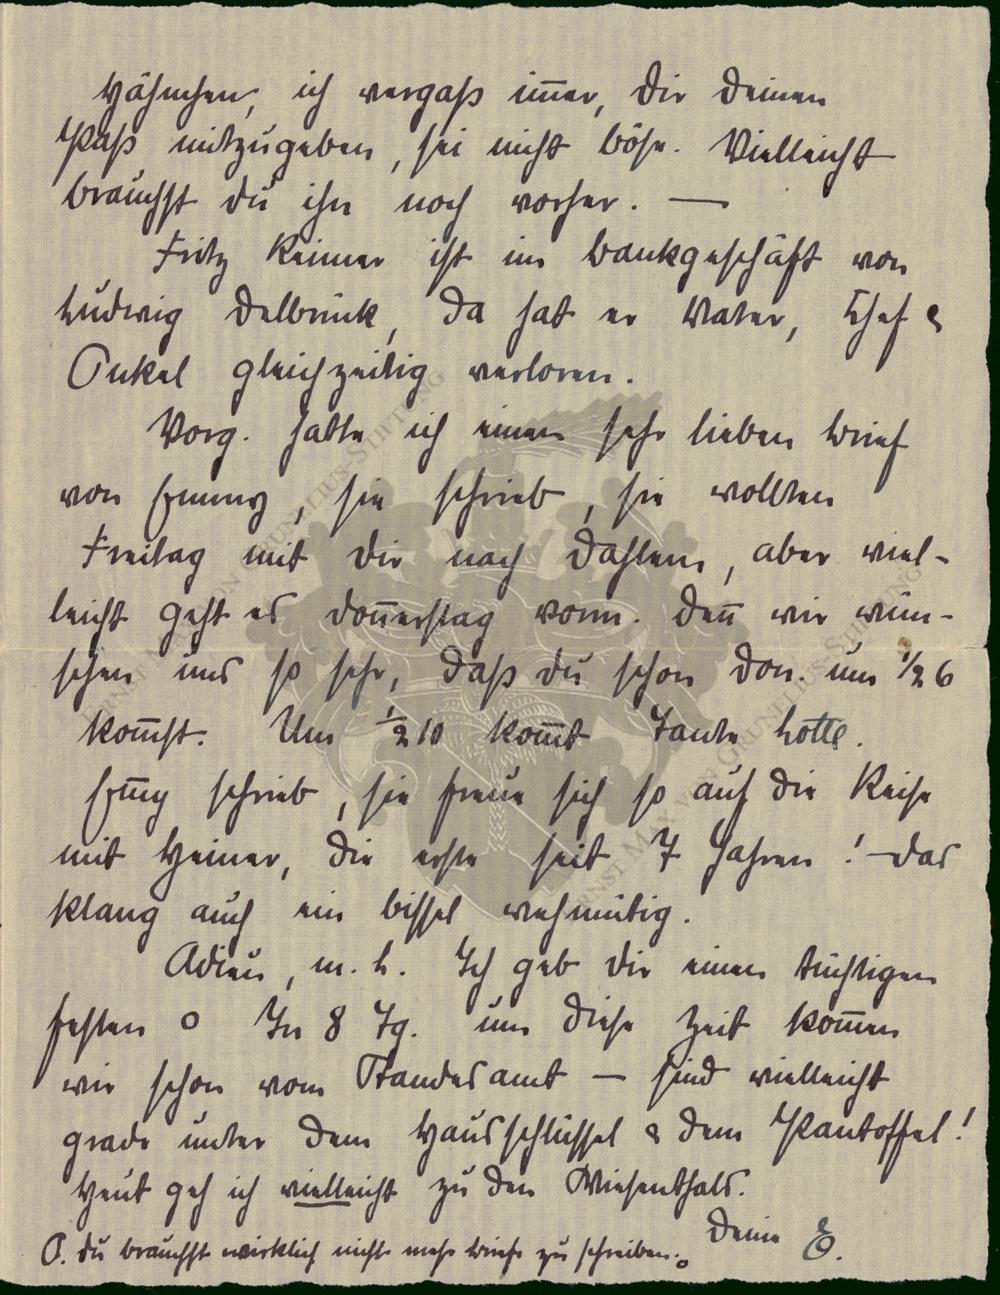 Hähnchen, ich vergaß im̅er, Dir Deinen
Paß mitzugeben, sei nicht böse. Vielleicht
brauchst du ihn noch vorher. —
Fritz Reimer ist im Bankgeschäft von
Ludwig Delbrück, da hat er Vater, Chef &
Onkel gleichzeitig verloren.
Vorg. hatte ich einen sehr lieben Brief
von Emmy, sie schrieb, sie wollten
Freitag mit Dir nach Dahlem, aber viel-
leicht geht es Don̅erstag vorm. Den̅ wir wün-
schen uns so sehr, daß du schon Don. um 1/2 6
kom̅st. Um 1/2 10 kom̅t Tante Lotte.
Em̅y schrieb, sie freue sich so auf die Reise
mit Heiner, die erste seit 7 Jahren! – Das
klang auch ein bissel wehmütig.
Adieu, m. L. Ich geb Dir einen tüchtigen
festen o In 8 Tg. um diese Zeit kom̅en
wir schon vom Standesamt – sind vielleicht
grade unter dem Hausschlüssel & dem Pantoffel!
Heut geh ich vielleicht zu den Wiesenthals.
Deine E.
P. Du brauchst wirklich nicht mehr Briefe zu schreiben.
ERNST MAX VON GRUNELIUS-STIFTUNG
ERNST MAX VON GRUNELIUS-STIFTUNG